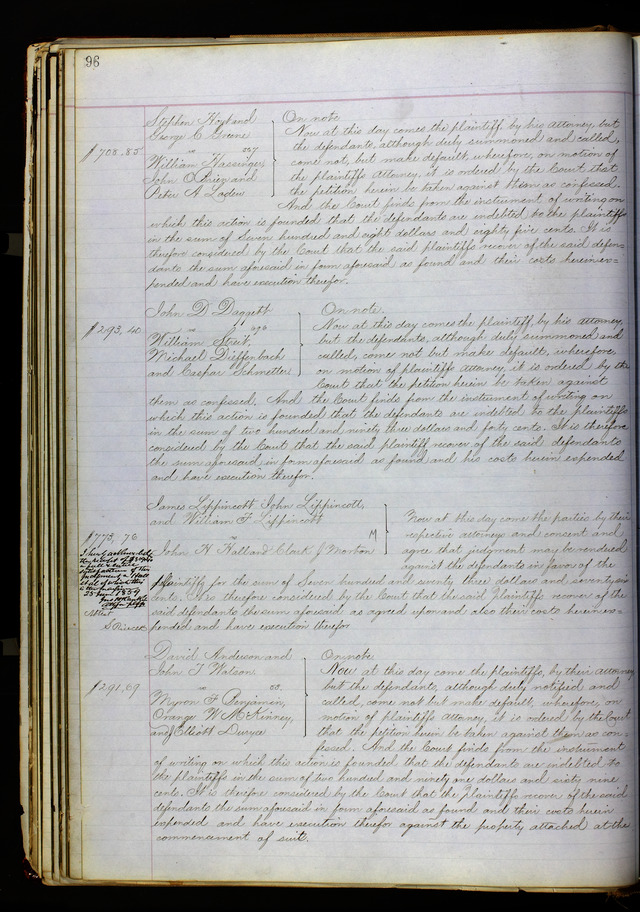 96
Stephen Hoyt and
George C. Greene
vs 207
William Hassinger,
John O'Brien and
Peter A. Ladew
$708.85
On note
Now at this day comes the plaintiff by his Attorney, but
the defendants, although duly summoned and called,
come not, but make default, wherefore, on motion of
the plaintiffs Attorney, it is ordered by the Court that
the petition herein be taken against them as confessed.
And the Court finds from the instrument of writing on
which this action is founded that the defendants are indebted to the plaintiffs
in the sum of Seven hundred and eight dollars and eighty five cents. It is
therefore considered by the Court that the said plaintiffs recover of the said defen=
dants the sum aforesaid in form aforesaid as found and their costs herein ex=
pended and have execution therefor.
John D. Daggett
vs
William Streit,
Michael Diffenbach
and Caspar Schmetter
$293,40
On note.
Now at this day comes the plaintiff, by his attorney,
but the defendants, although duly summoned and
called, come not but make default, wherefore,
on motion of plaintiffs Attorney, it is ordered by the
Court that the petition herein be taken against
them as confessed. And the Court finds from the instrument of writing on
which this action is founded that the defendants are indebted to the plaintiffs
in the sum of two hundred and ninety three dollars and forty cents. It is therefore
considered by the Court that the said plaintiff recover of the said defendants
the sum aforesaid in form aforesaid as found and his costs herein expended
and have execution therefor.
James Lippincott, John Lippincott,
and William F. Lippincott
M
John H Hall and Clark J. Morton
$773,76
25 1859
Attest
S Rince
Now at this day come the parties by their
respective attorneys and consent and
agree that judgment may be rendered
against the defendants in favor of the
plaintiffs for the sum of Seven hundred and seventy three dollars and seventy six
cents. It is therefore considered by the Court that the said plaintiffs recover of the
said defendants the sum aforesaid as agreed upon and also their costs herein ex=
pended and have execution therefor
David Anderson and
John T Watson.
vs 50.
Myron F Benjamin,
Orange W McKinney,
and Elliott Durya
$291,69
On note
Now at this day come the plaintiffs, by their attorney
but the defendants, although duly notified and
called, come not but make default, wherefore, on
motion of plaintiffs Attorney, it is ordered by the Court
that the petition herein be taken against them as con=
fessed. And the Court finds from the instrument
of writing on which this action is founded that the defendants are indebted to
the plaintiffs in the sum of two hundred and ninety one dollars and sixty nine
cents. It is therefore considered by the Court that the plaintiffs recover of the said
defendants the sum aforesaid in form aforesaid as found and their costs herein
expended and have execution therefor against the property attached at the
commencement of suit.